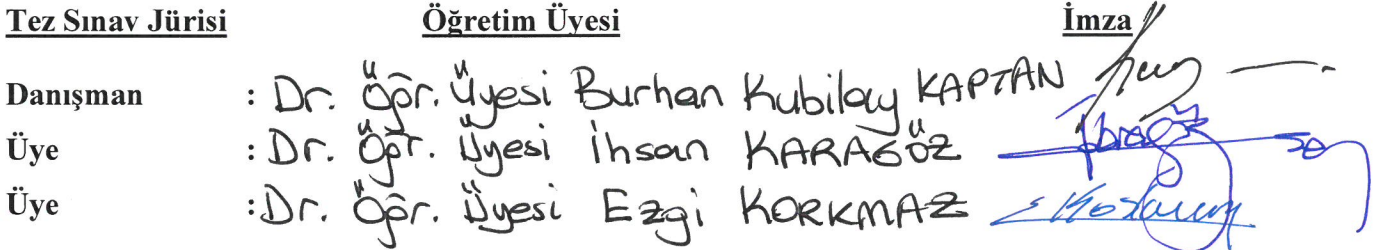 Tez Sınav Jürisi Öğretim Üyesi İmza
Danışman : Dr. Öğr. Üyesi Burhan Kubilay KAPTAN
Üye : Dr. Öğr. Üyesi İhsan KARAGÖZ
Üye : Dr. Öğr. Üyesi Ezgi KORKMAZ